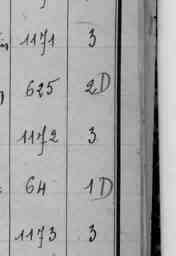 1171 3
625 2D
1172 3
64 1D
1173 3